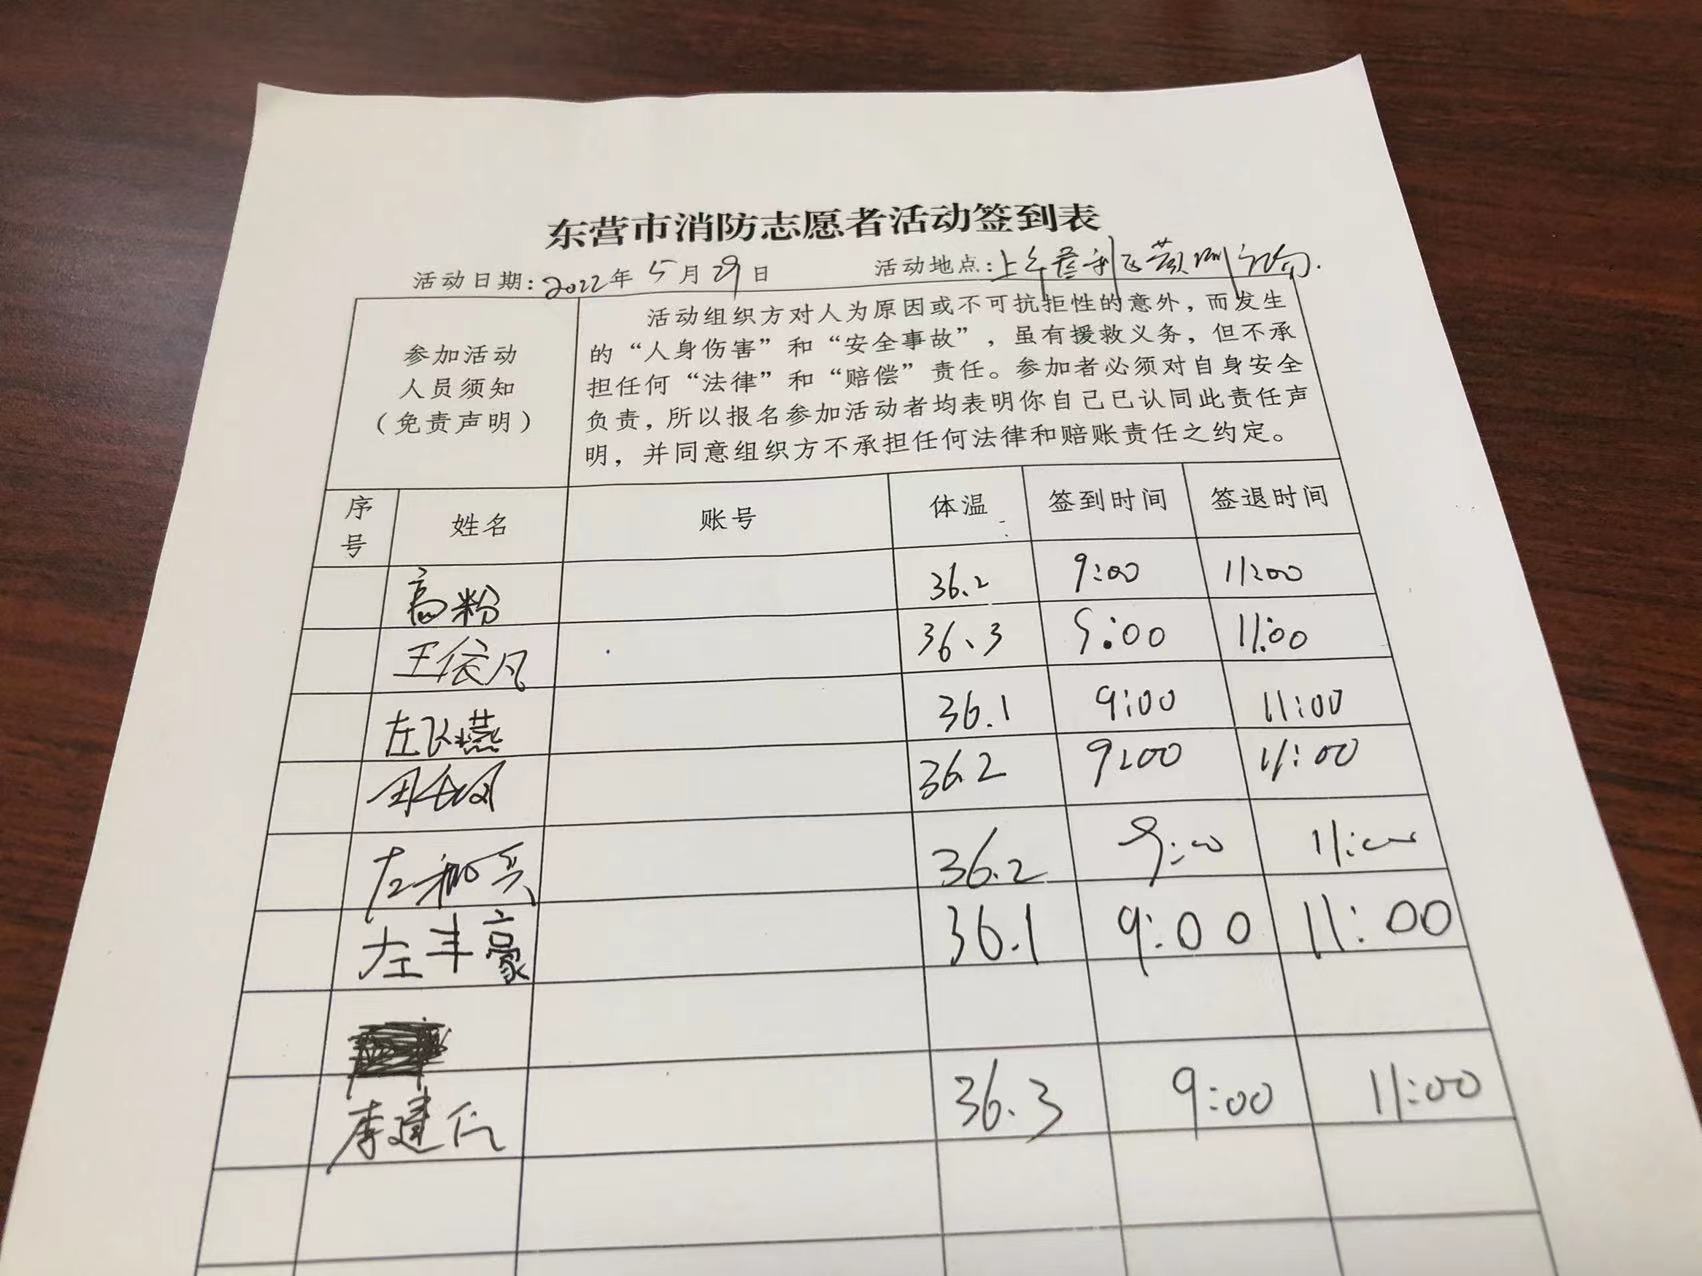 东营市消防志愿者活动签到表
活动日期:2022年5月29日 活动地点:
参加活动
人员须知
(免责声明)
活动组织方对人为原因或不可抗拒性的意外,而发生
的“人身伤害”和“安全事故”,虽有援救义务,但不承
担任何“法律”和“赔偿”责任。参加者必须对自身安全
负责,所以报名参加活动者均表明你自己已认同此责任声
明,并同意组织方不承担任何法律和赔账责任之约定。
序号 姓名 账号 体温 签到时间 签退时间
高粉 36.2 9:00 11:00
36.3 9:00 11:00
左飞燕 36.1 9:00 11:00
36.2 9:00 11:00
36.2 9:00 11:00
左丰豪 36.1 9:00 11:00
李建仁 36.3 9:00 11:00